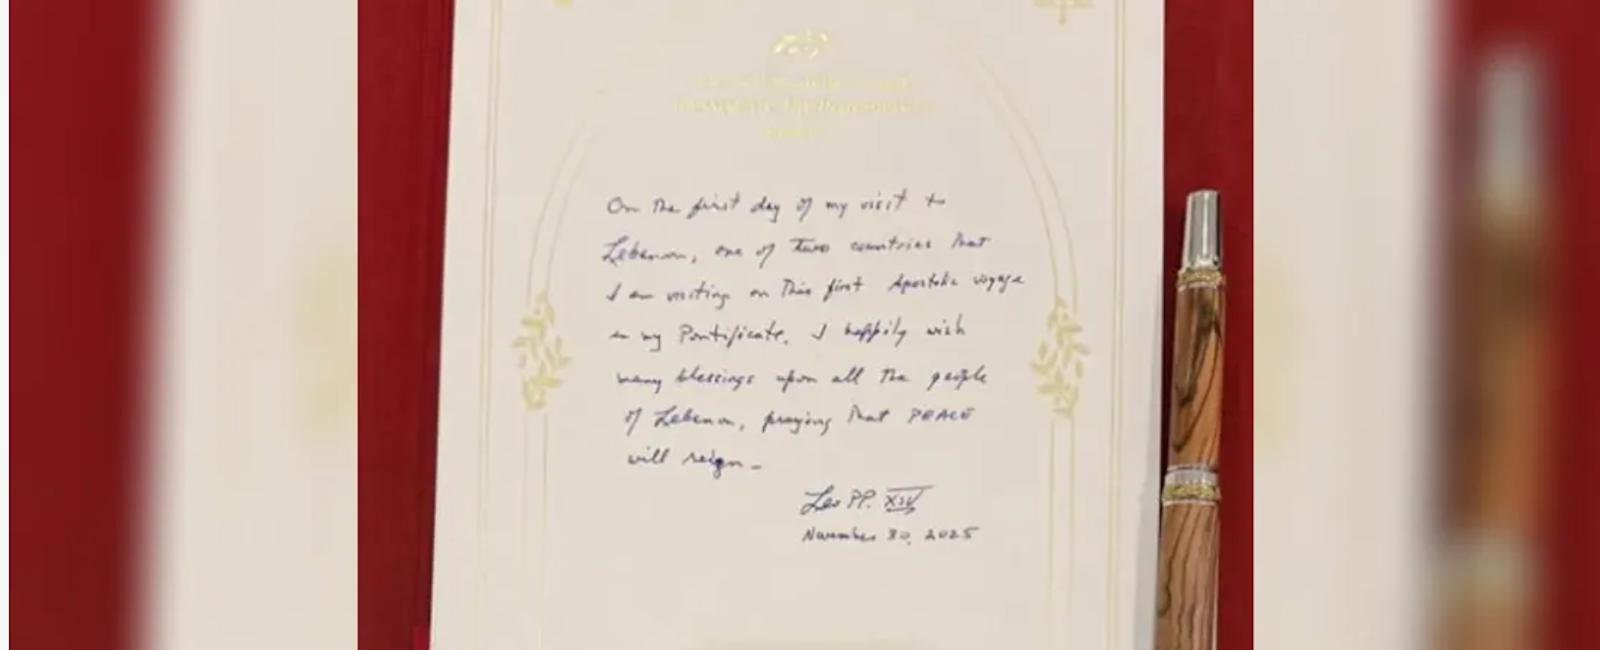 On the first day of my visit to
Lebanon, one of two countries that
I am visiting on this first Apostolic voyage
in my Pontificate, I happily wish
many blessings upon all the people
of Lebanon, praying that PEACE
will reign –
Leo PP. XIV
November 30, 2025